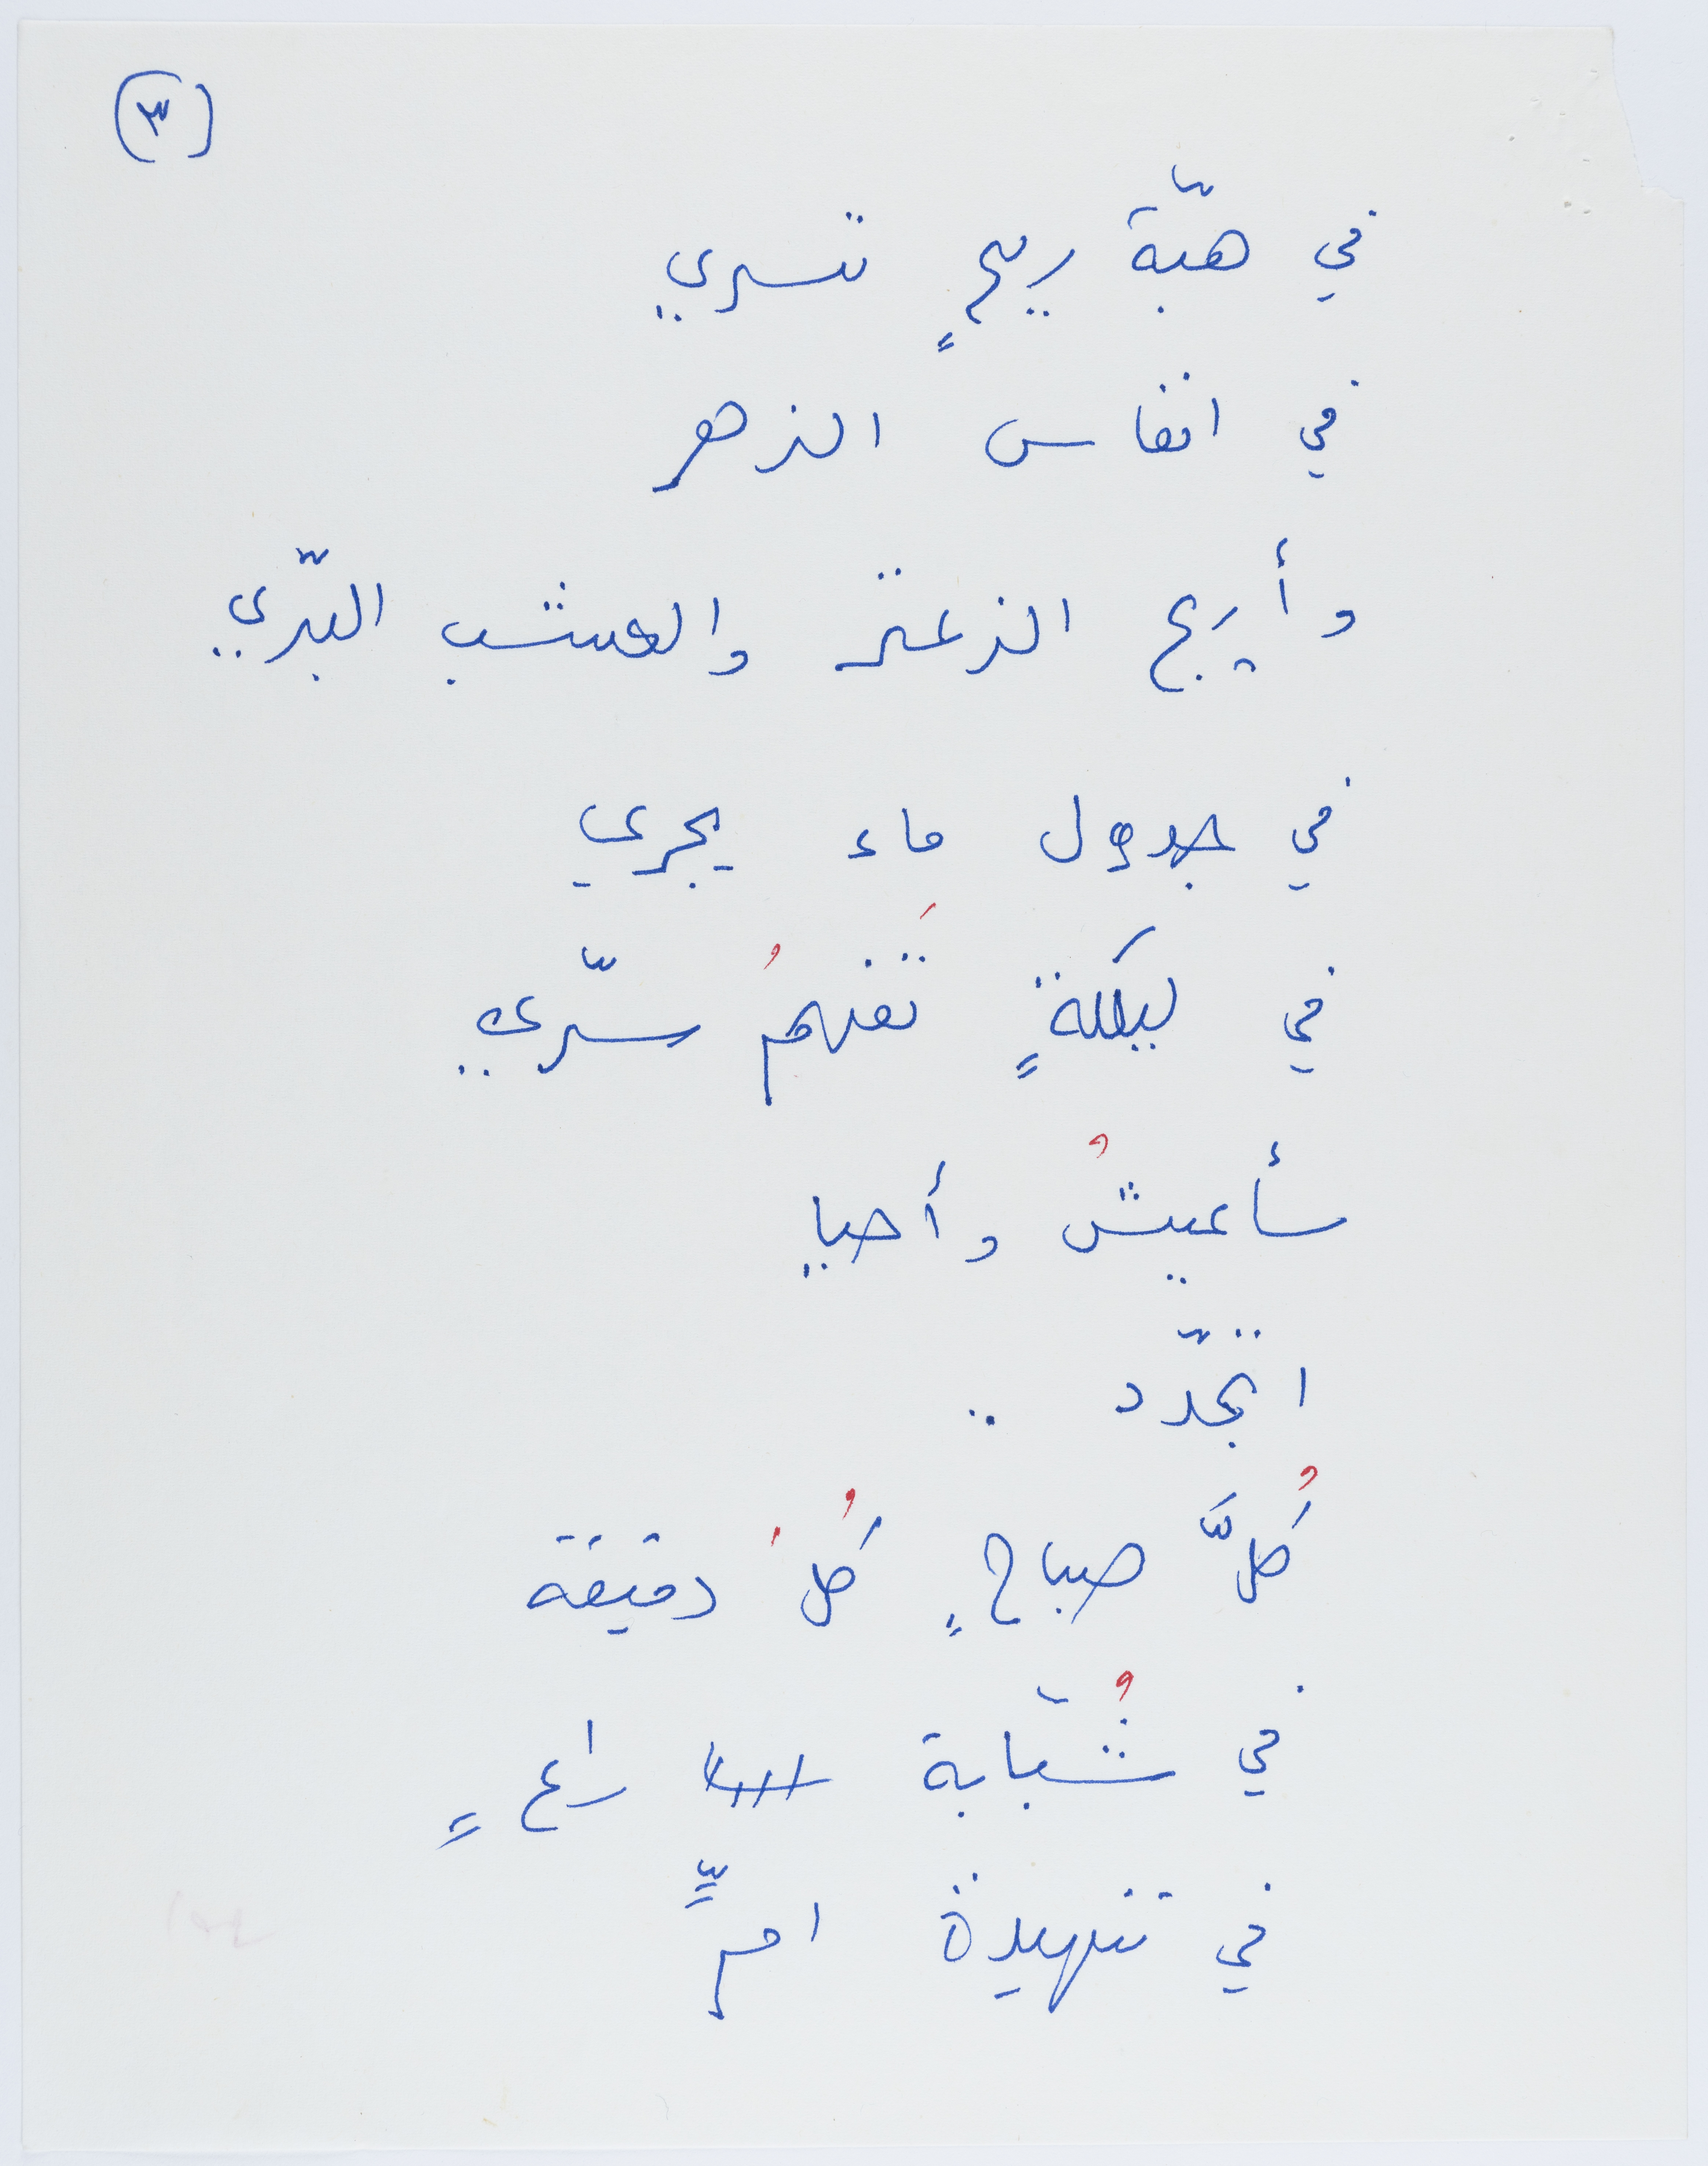 (٣)
في هبّة ريحٍ تسري
في انفاس الزهر
وأريج الزعتر والعشب البرّي
في جدول ماء يجري
في ليلةٍ تَفهمُ سرّي
سأعيشُ وأحيا
اتجدّد ..
كُلَّ صباحٍ كُل دقيقة
في شُبّابة راعٍ
في تنهيدة امٍّ